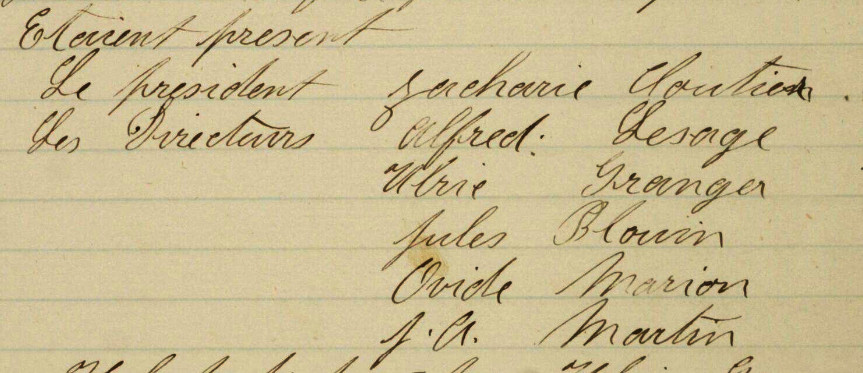 Etaient present
Le president Zacharie Cloutier
Les Directeurs Alfred. Lesage
Ulric Granger
Jules Blouin
Ovide Marion
J. A. Martin